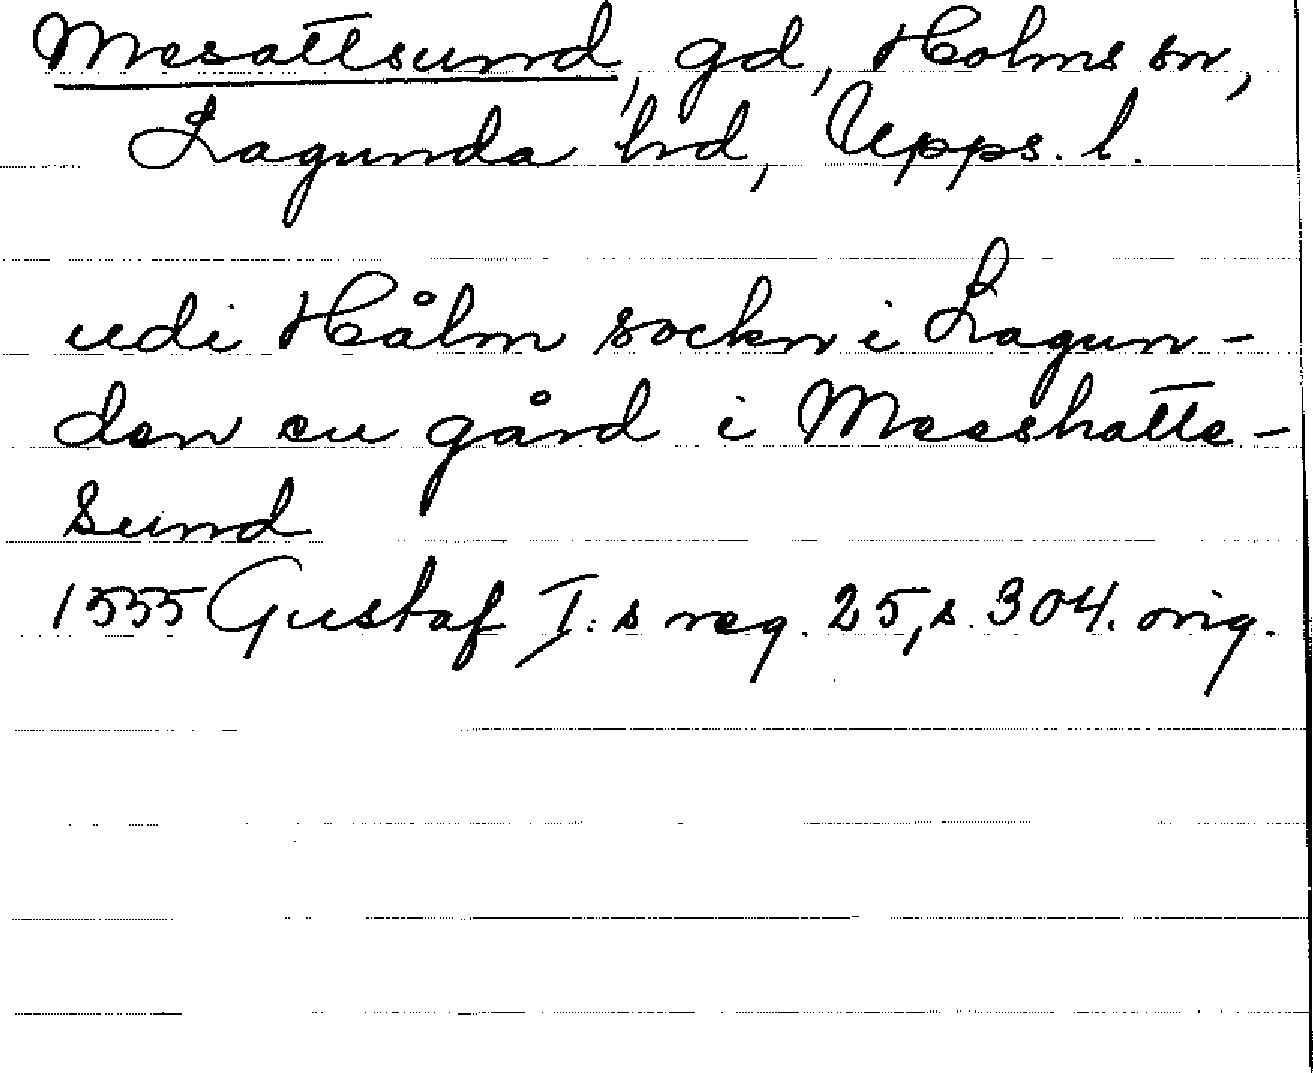 Mesattsund, gd, Holms sn,
Lagunda hd, Upps. l.
udi Hålm sockn i Lagun-
den en gård i Meeshatte-
Sund
1555 Gustaf I:s reg. 25, s. 304. orig.